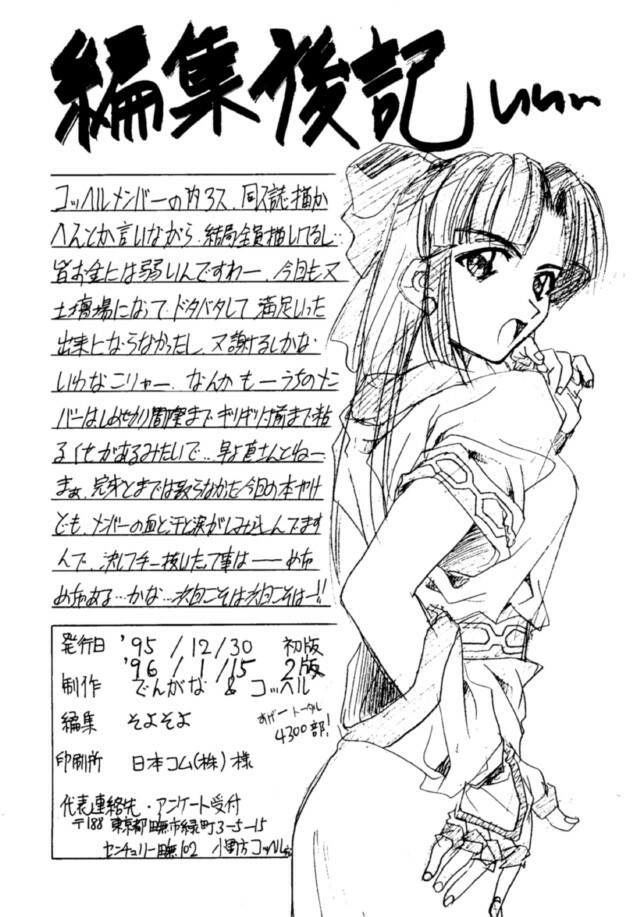 編集後記 いいい
コッヘルメンバーの内3人、同人誌描か
へんとか言いながら、結局全員描いてるし…
皆お金には弱いんですわー、今回も又
土壇場になって、ドタバタして 満足いった
出来にならなかったし、又謝るしかな
いわなこりゃー、なんかもーうちのメン
バーはしめきり間際まで ギリギリ寸前まで粘
るくせがあるみたいで…早よ直さんとねー
まぁ、完ペキとまでは至らなかった今回の本やけ
ども、メンバーの血と汗と涙がしみ込んでます
んで、決して手抜したって事は――めちゃ
めちゃある…かな…次回こそは次回こそはー!!
発行日 '95/12/30 初版
'96/1/15 2版
制作 でんがな & コッヘル
編集 そよそよ
トータル
4300部!
印刷所 日本コム(株)様
代表連絡先・アンケート受付
〒188 東京都田無市緑町3-5-15
センチュリー田無102 小野方 コッヘル